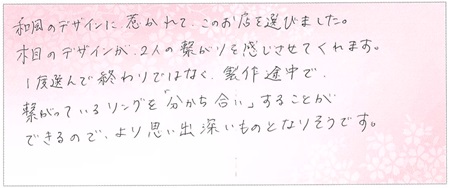 和風のデザインに惹かれて、このお店を選びました。
木目のデザインが、2人の繋がりを感じさせてくれます。
1度選んで終わりではなく、製作途中で、
繋がっているリングを「分かち合い」することが
できるので、より思い出深いものとなりそうです。